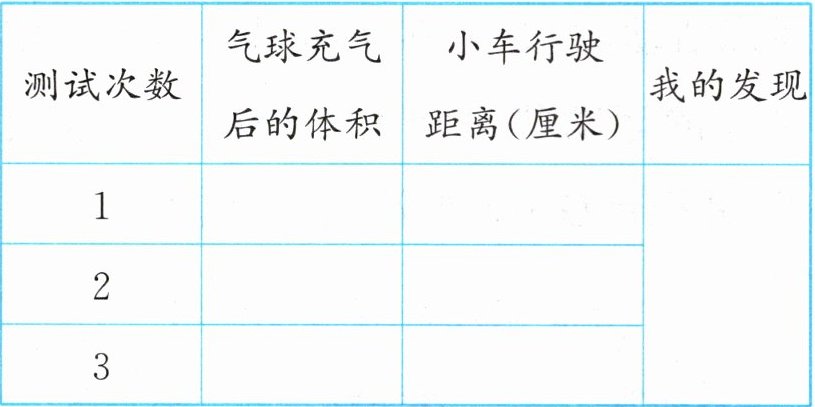 测试次数
气球充气
后的体积
小车行驶
距离(厘米)
我的发现
1
2
3